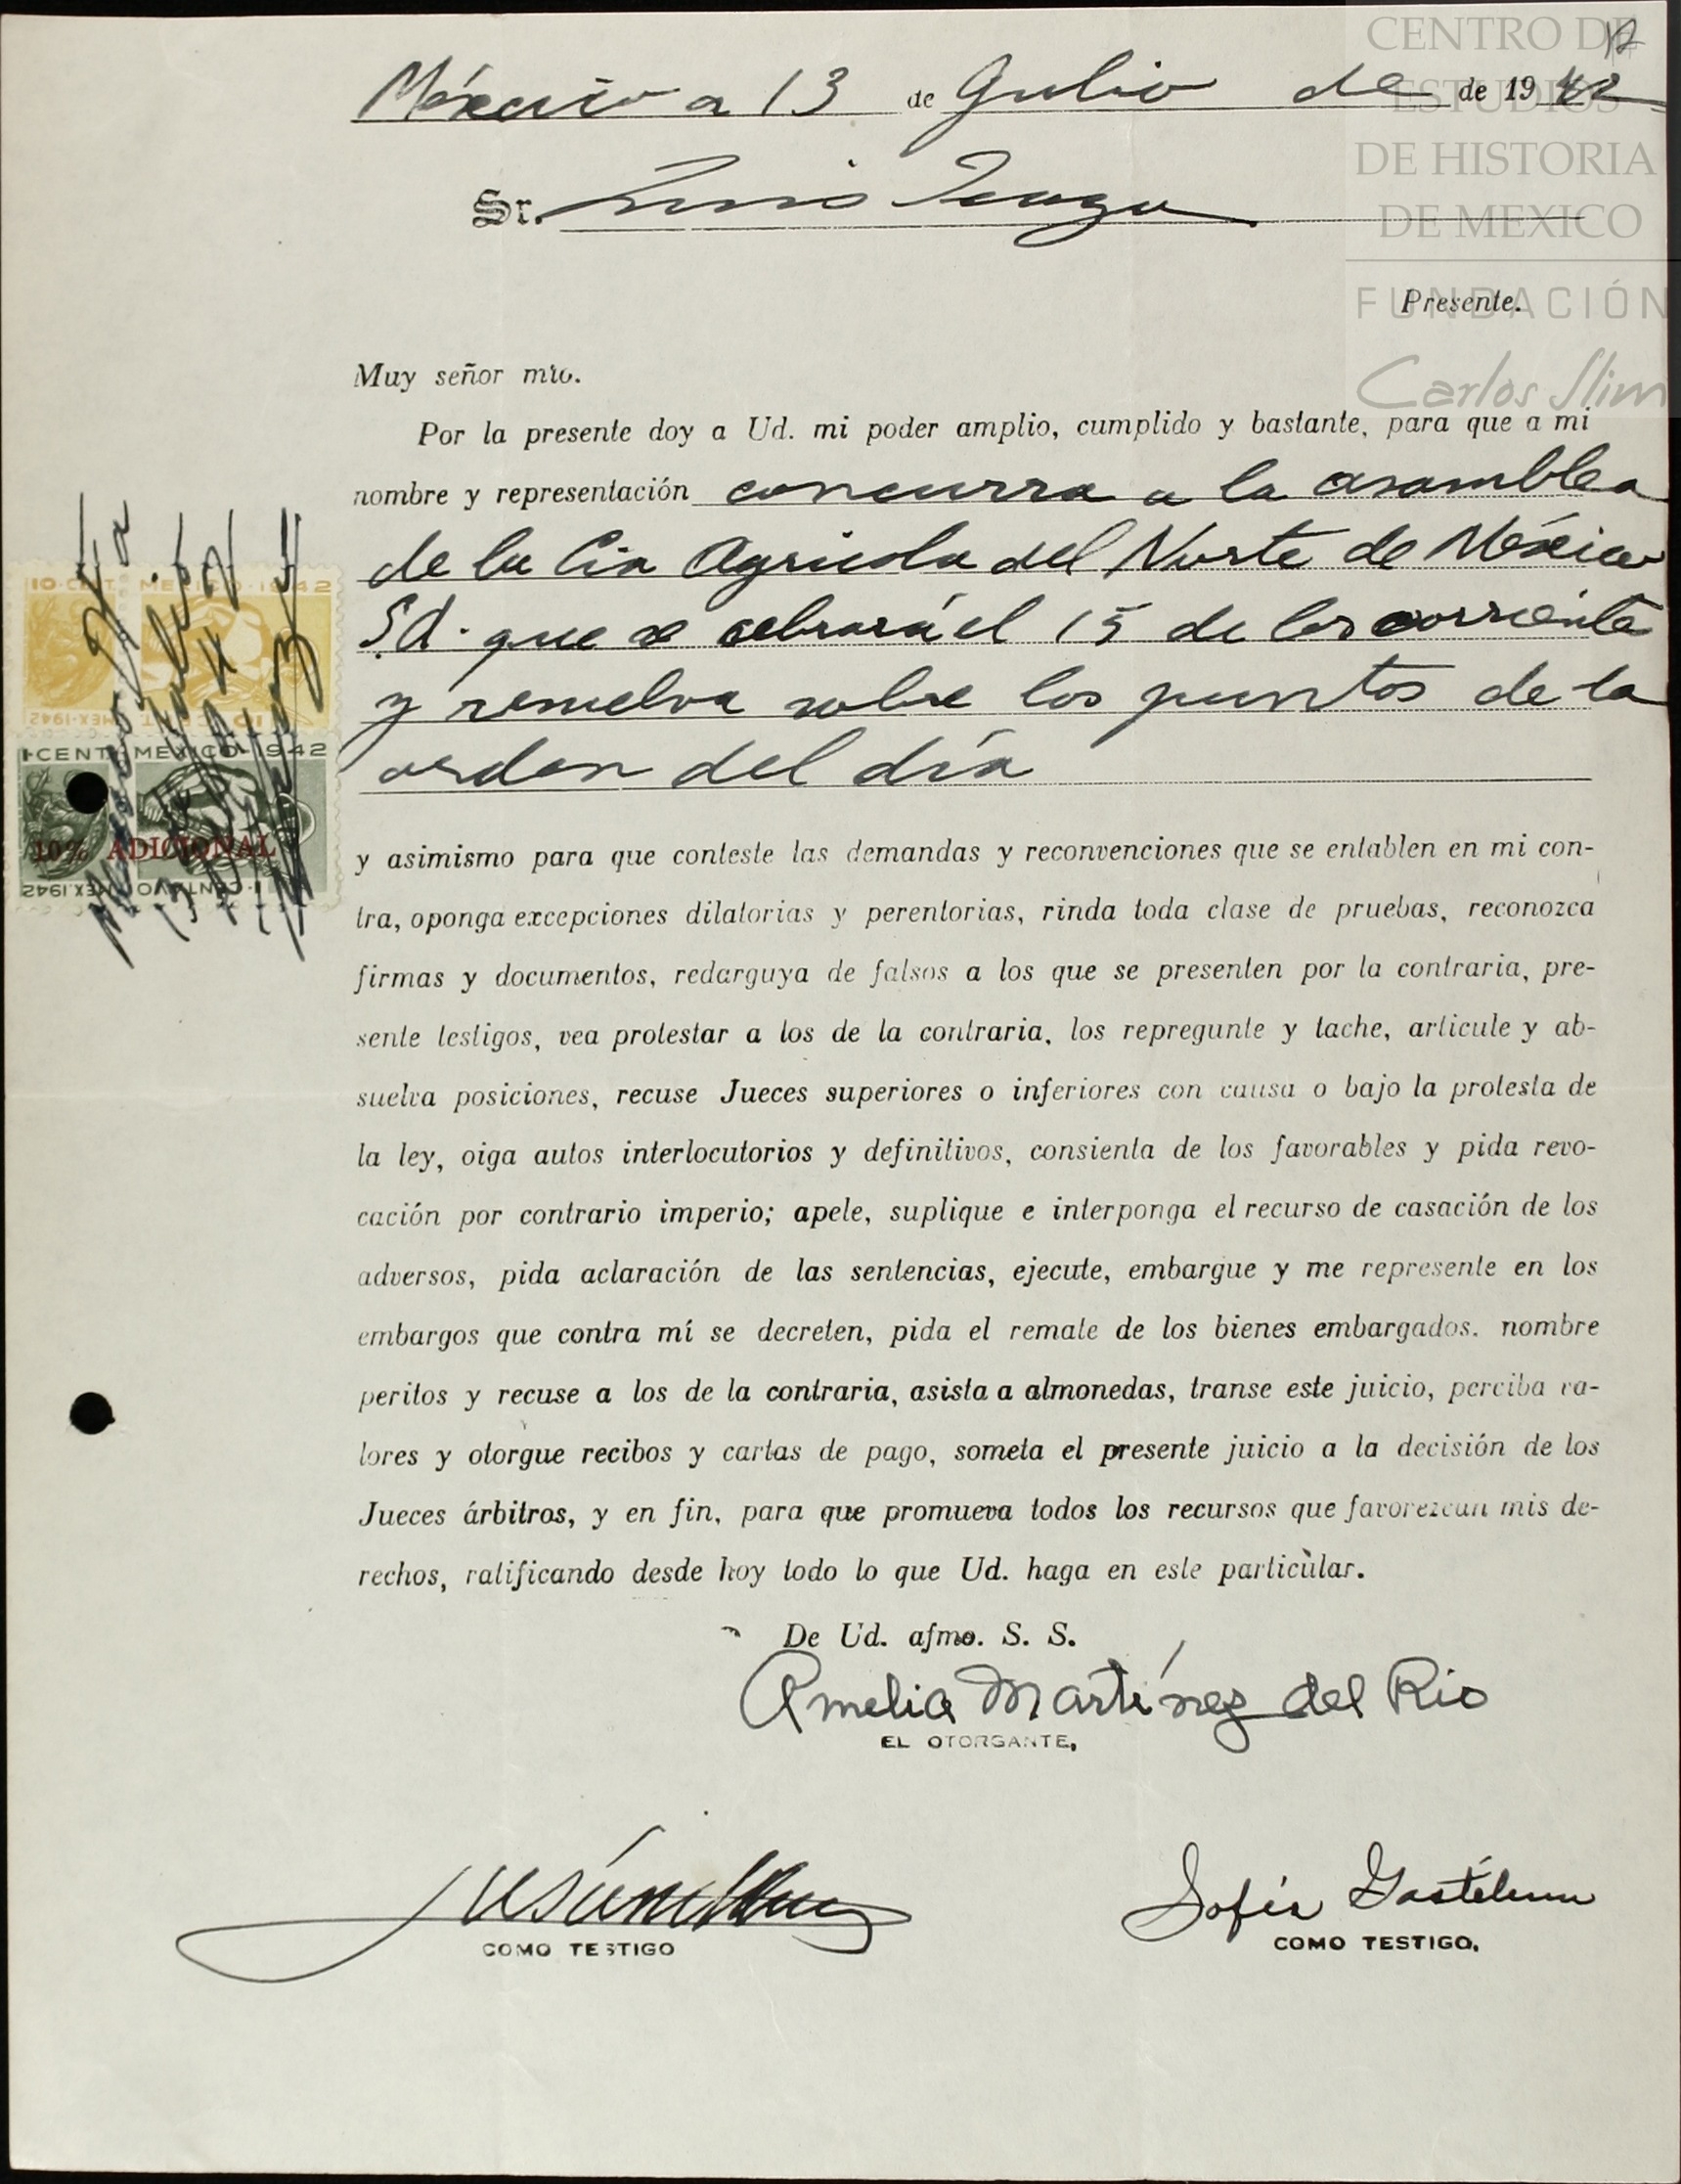 CENTRO DE
ESTUDIOS
DE HISTORIA
DE MEXICO
FUNDACIÓN
Carlos Slim
12
México a 13 de Julio de de 1942
Sr. Luis
Presente.
Muy señor mío.
Por la presente doy a Ud. mi poder amplio, cumplido y bastante, para que a mi
nombre y representación concurra a la asamblea
de la Cia Agricola del Norte de México
S.A. que se celebrará el 15 de los corriente
y resuelva sobre los puntos de la
orden del día
10 CENT MEXICO 1942
1 CENT MEXICO 1942
10% ADICIONAL
y asimismo para que conteste las demandas y reconvenciones que se entablen en mi con-
tra, oponga excepciones dilatorias y perentorias, rinda toda clase de pruebas, reconozca
firmas y documentos, redarguya de falsos a los que se presenten por la contraria, pre-
sente testigos, vea protestar a los de la contraria, los repregunte y tache, articule y ab-
suelva posiciones, recuse Jueces superiores o inferiores con causa o bajo la protesta de
la ley, oiga autos interlocutorios y definitivos, consienta de los favorables y pida revo-
cación por contrario imperio; apele, suplique e interponga el recurso de casación de los
adversos, pida aclaración de las sentencias, ejecute, embargue y me represente en los
embargos que contra mí se decreten, pida el remate de los bienes embargados. nombre
peritos y recuse a los de la contraria, asista a almonedas, transe este juicio, perciba va-
lores y otorgue recibos y cartas de pago, someta el presente juicio a la decisión de los
Jueces árbitros, y en fin, para que promueva todos los recursos que favorezcan mis de-
rechos, ratificando desde hoy todo lo que Ud. haga en este particular.
De Ud. afmo. S. S.
Amelia Martínez del Rio
EL OTORGANTE,
COMO TESTIGO
Sofía Gastélum
COMO TESTIGO,